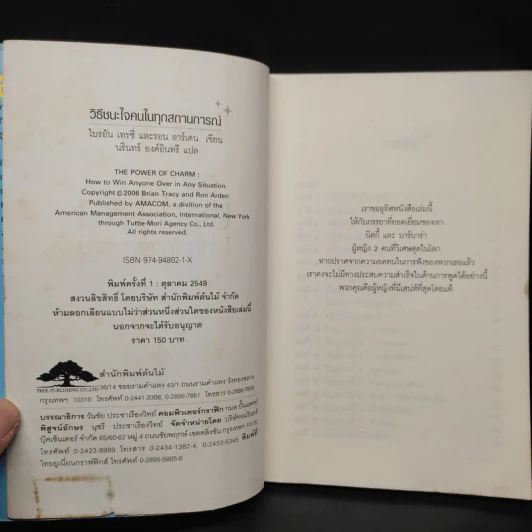 วิธีชนะใจคนในทุกสถานการณ์
ไบรอัน เทรซี่ และรอน อาร์เดน เขียน
นรินทร์ องค์อินทรี แปล
THE POWER OF CHARM :
How to Win Anyone Over in Any Situation
Copyright © 2006 Brian Tracy and Ron Arden
Published by AMACOM, a division of the
American Management Association, International, New York
through Tuttle-Mori Agency Co., Ltd.
All rights reserved.
ISBN 974-94802-1-X
พิมพ์ครั้งที่ 1 : ตุลาคม 2549
สงวนลิขสิทธิ์ โดยบริษัท สำนักพิมพ์ต้นไม้ จำกัด
ห้ามลอกเลียนแบบไม่ว่าส่วนหนึ่งส่วนใดของหนังสือเล่มนี้
นอกจากจะได้รับอนุญาต
ราคา 150 บาท
สำนักพิมพ์ต้นไม้
TREE PUBLISHING CO.,LTD
36/14 ซอยรามคำแหง 43/1 ถนนรามคำแหง วังทองหลาง
กรุงเทพฯ 10310 โทรศัพท์ 0-2441-3306, 0-2898-7861 โทรสาร
บรรณาธิการ วันชัย ประชาเรืองวิทย์ คอมพิวเตอร์กราฟิก กมล
พิสูจน์อักษร นุชรี ประชาเรืองวิทย์ จัดจำหน่ายโดย บริษัทอมรินทร์
บุ๊คเซ็นเตอร์ จำกัด 65/60-62 หมู่ 4 ถนนชัยพฤกษ์ เขตตลิ่งชัน กรุงเทพฯ
โทรศัพท์ 0-2423-9999 โทรสาร 0-2434-1382-4, 0-2433-6349 พิมพ์ที่
ไทยยูเนี่ยนกราฟฟิกส์ โทรศัพท์ 0-2895-5665-6
เราขออุทิศหนังสือเล่มนี้
ให้กับภรรยาที่ยอดเยี่ยมของเรา
นิคกี้ และ บาร์บาร่า
ผู้หญิง 2 คนที่วิเศษสุดในโลก
หากปราศจากความอดทนในการฟังของพวกเธอแล้ว
เราคงจะไม่มีทางประสบความสำเร็จในด้านการพูดได้อย่างนี้
พวกคุณคือผู้หญิงที่มีเสน่ห์ที่สุดโดยแท้